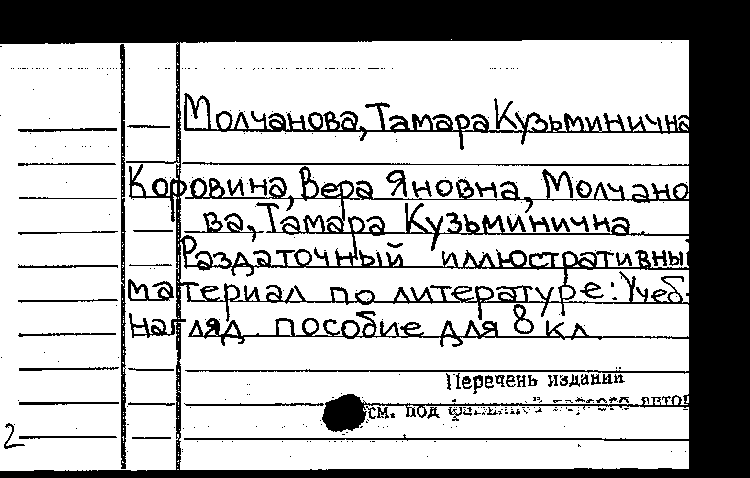 Молчанова, Тамара Кузьминична
Коровина, Вера Яновна, Молчано
ва, Тамара Кузьминична
Раздаточный иллюстративный
материал по литературе: Учеб.-
нагляд. пособие для 8 кл.
Перечень изданий
см. под фамилией первого автор
2